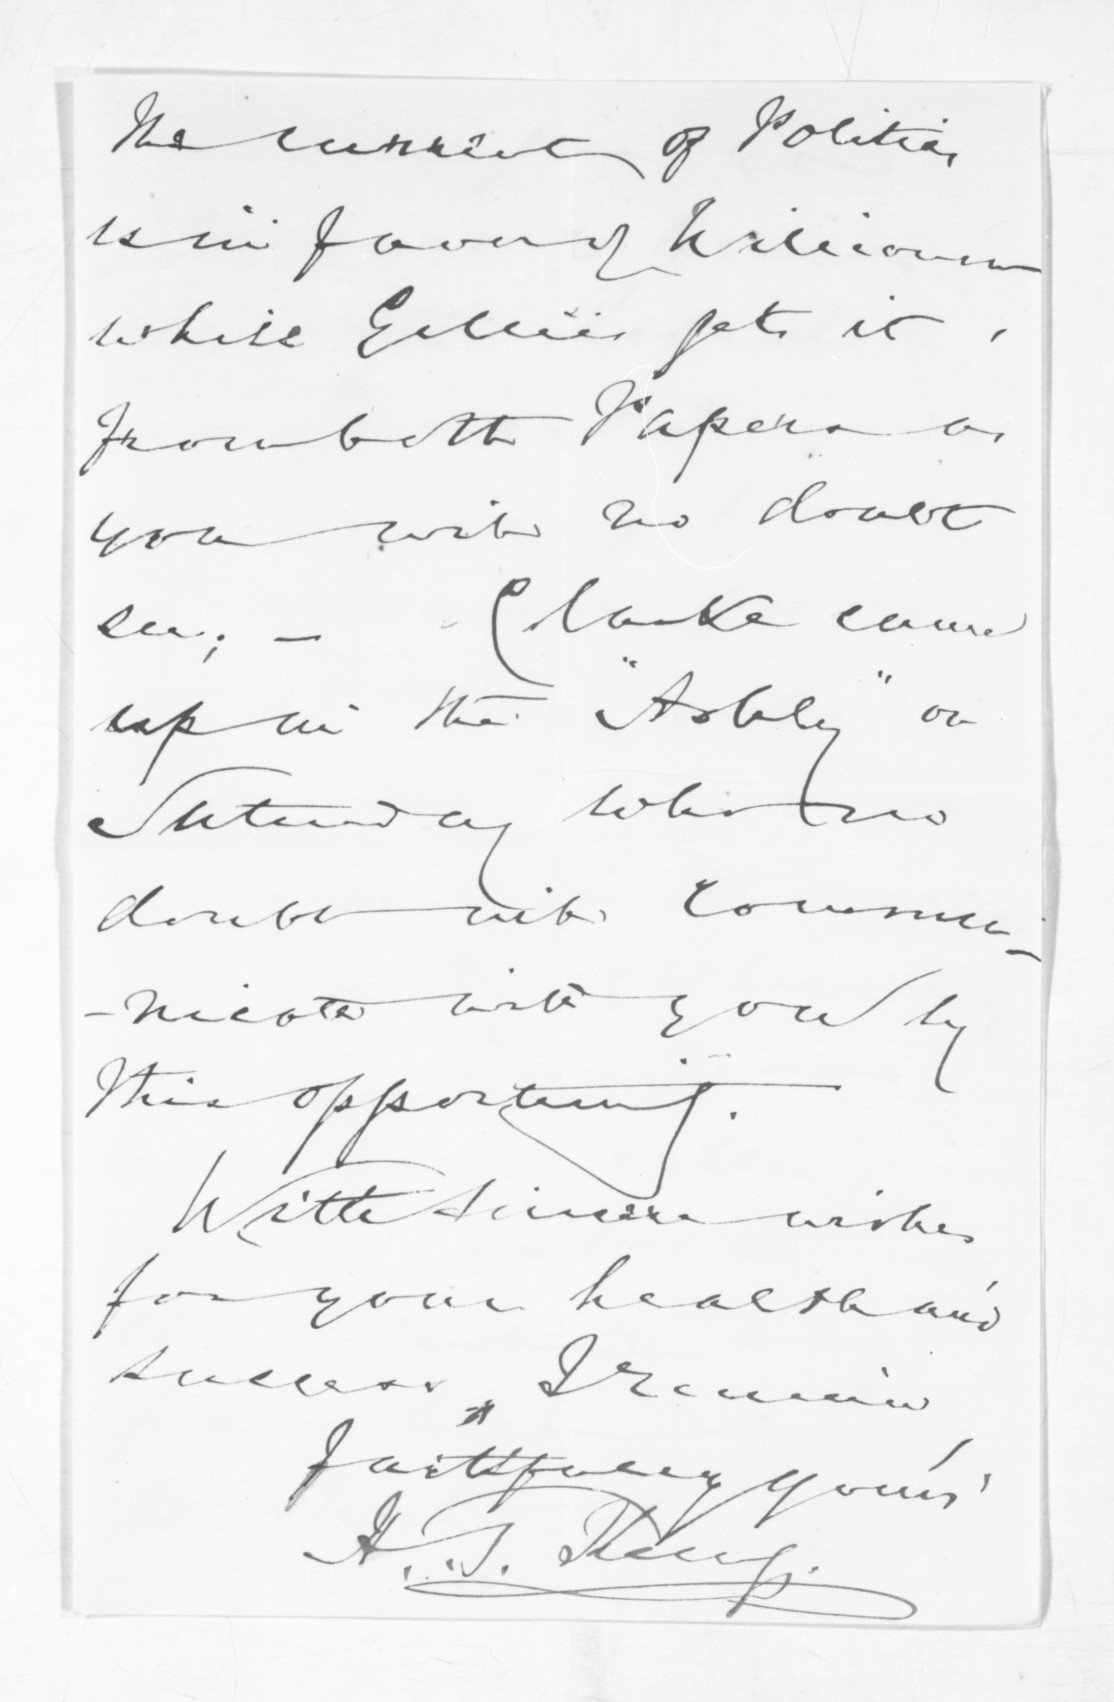 The current of Politics
is in favor of Williamson
while Gillies gets it,
from both Papers as
you will no doubt
see; — Clarke came
up in the "Ashly" on
Saturday who no
doubt will commu-
-nicate with you by
this opportunity.
With sincere wishes
for your health and
success, I remain
faithfully yours
H. T.